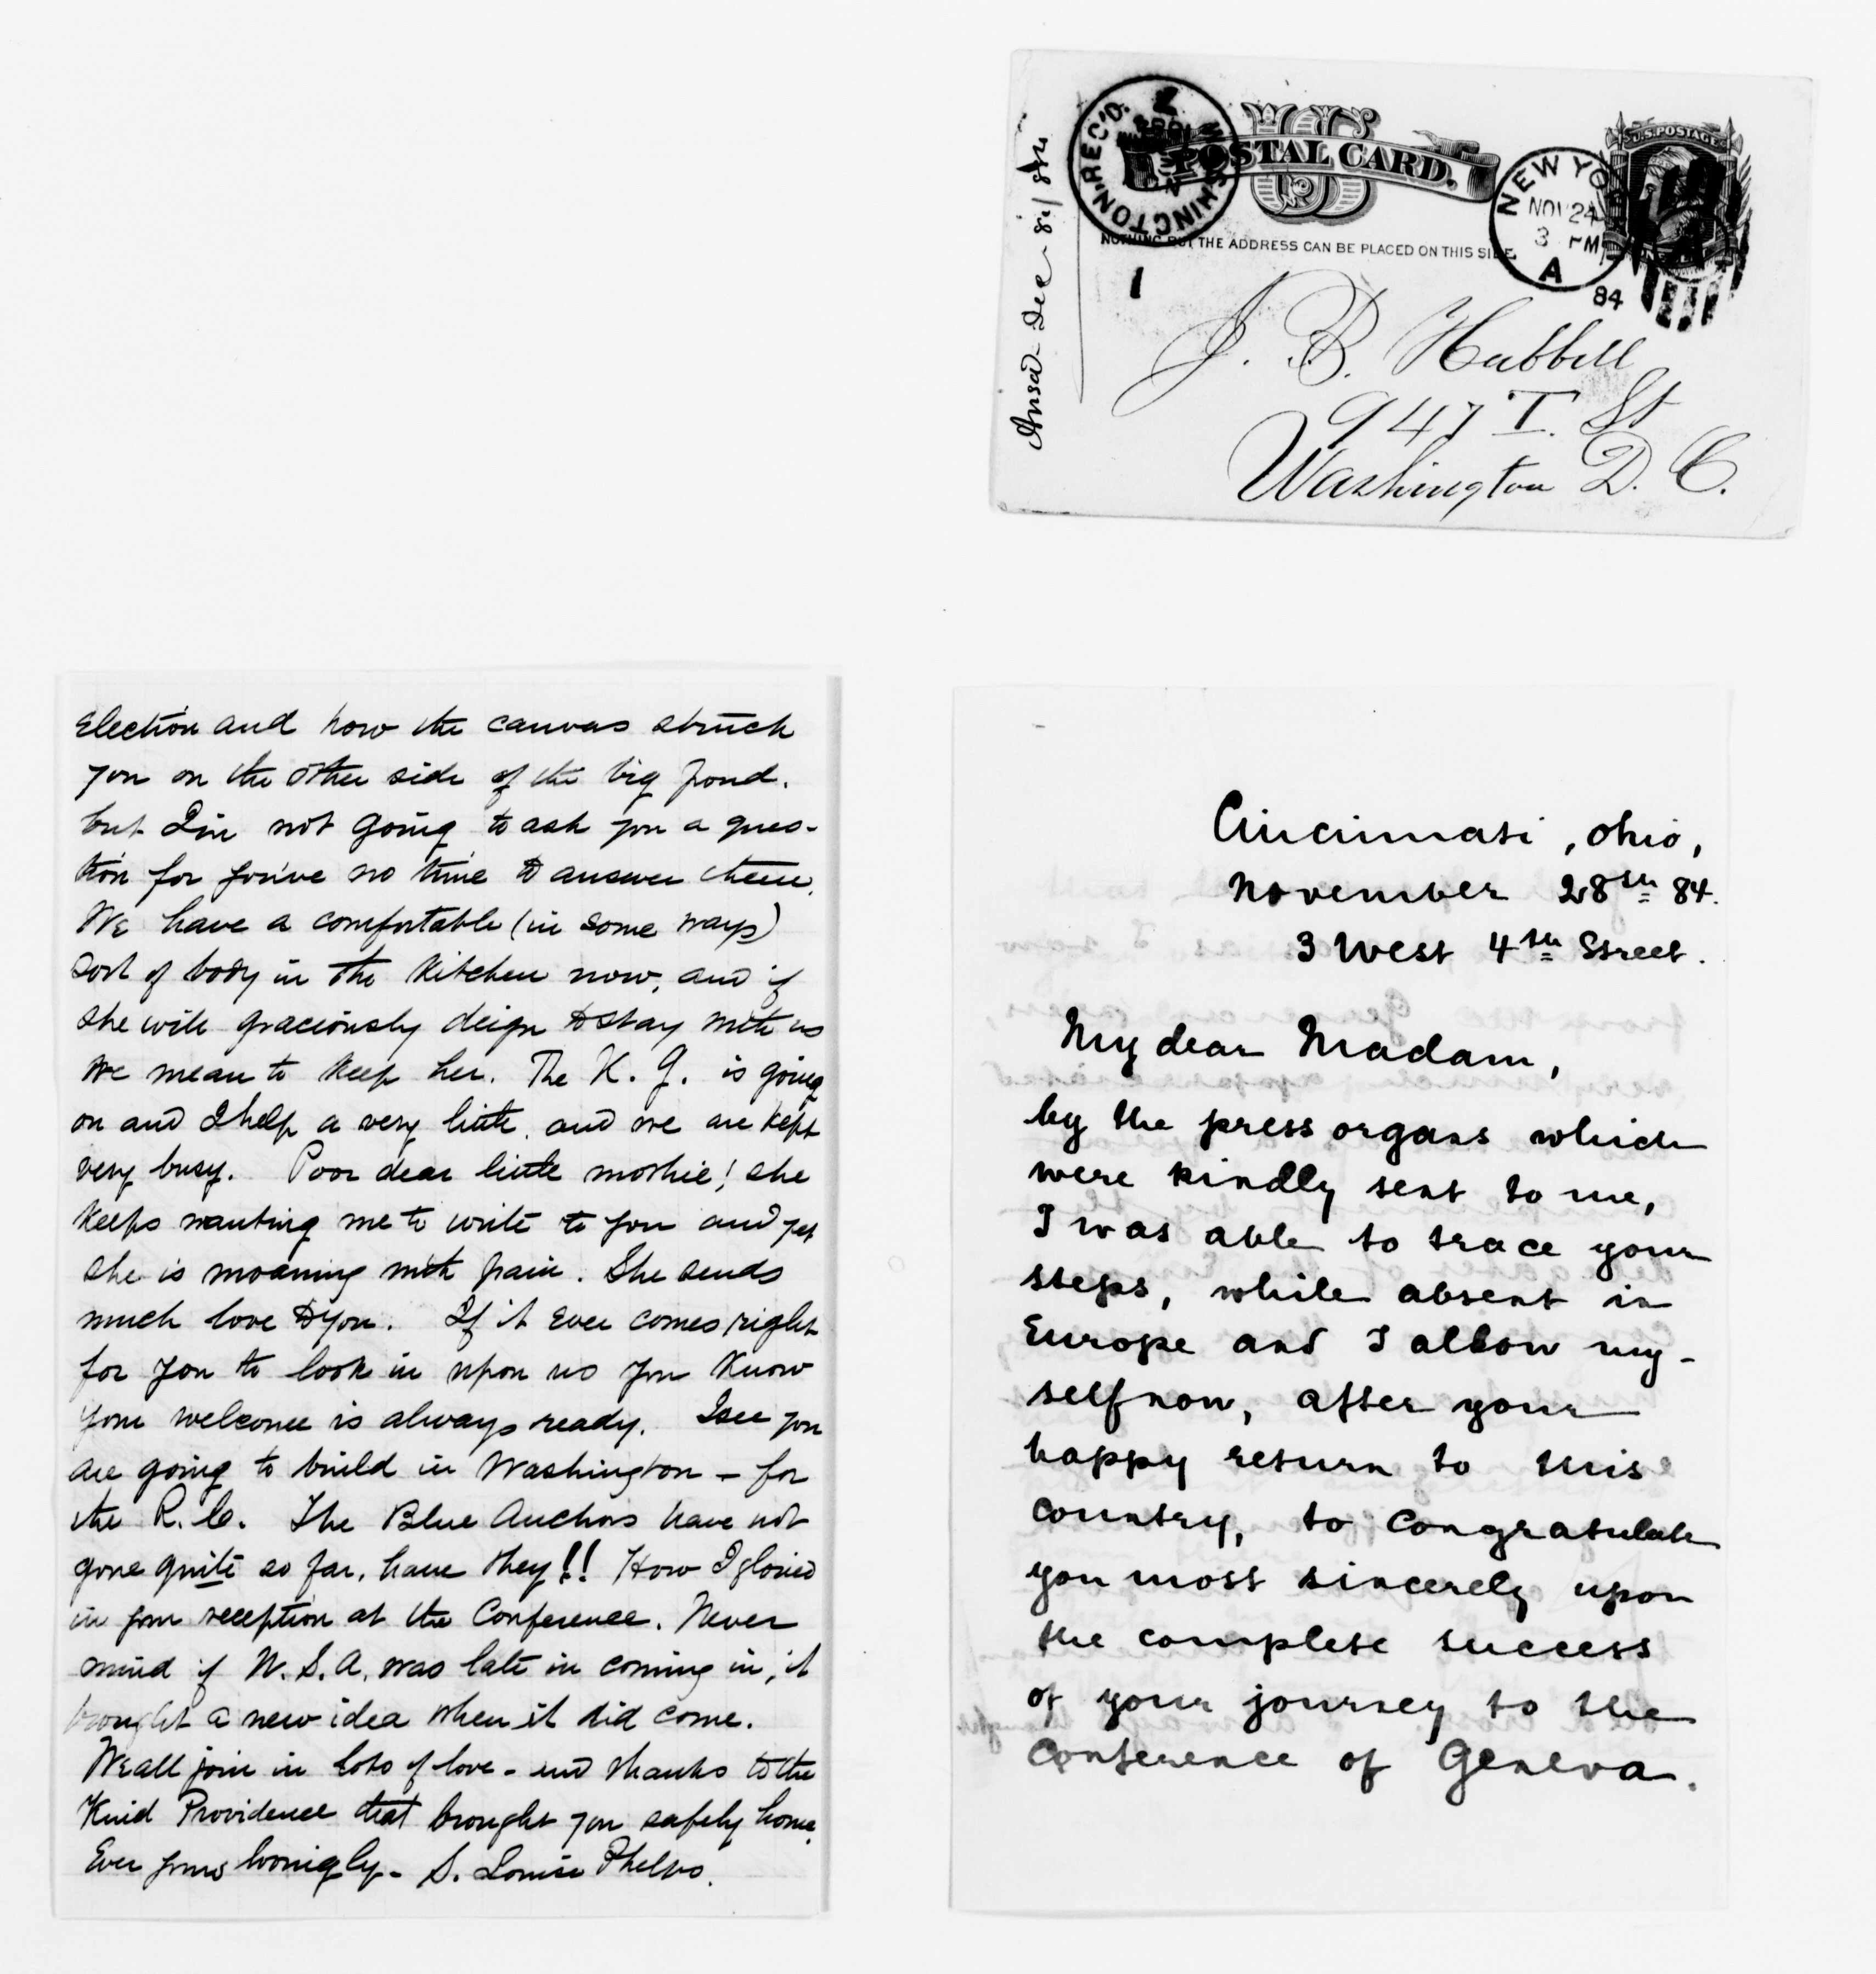 U.S. POSTAGE
WASHINGTON, REC'D.
US
POSTAL CARD.
NEW YORK
NOV 24
3 PM
A
84
NOTHING BUT THE ADDRESS CAN BE PLACED ON THIS SIDE.
1
J. B. Hubbell
947 T. St
Washington D. C.
Ansd Dec
Election and how the canvas struck
you on the other side of the big pond.
but I'm not going to ask you a ques-
tion for you've no time to answer them.
We have a comfortable (in some ways)
sort of body in the kitchen now, and if
she will graciously deign to stay with us
we mean to keep her. The K. G. is going
on and I help a very little, and we are kept
very busy. Poor dear little mothie! she
keeps wanting me to write to you and yet
she is moaning with pain. She sends
much love to you. If it ever comes right
for you to look in upon us you know
your welcome is always ready. I see you
are going to build in Washington - for
the R. C. The Blue Anchors have not
gone quite so far, have they!! How I gloried
in your reception at the Conference. Never
mind if N. S. A. was late in coming in, it
brought a new idea when it did come.
We all join in lots of love - and thanks to the
Kind Providence that brought you safely home.
Ever yours lovingly - S. Louise Phelps.
Cincinnati, Ohio,
November 28th 84.
3 West 4th Street.
My dear Madam,
by the press organs which
were kindly sent to me,
I was able to trace your
steps, while absent in
Europe and I allow my-
self now, after your
happy return to this
country, to congratulate
you most sincerely upon
the complete success
of your journey to the
Conference of Geneva.